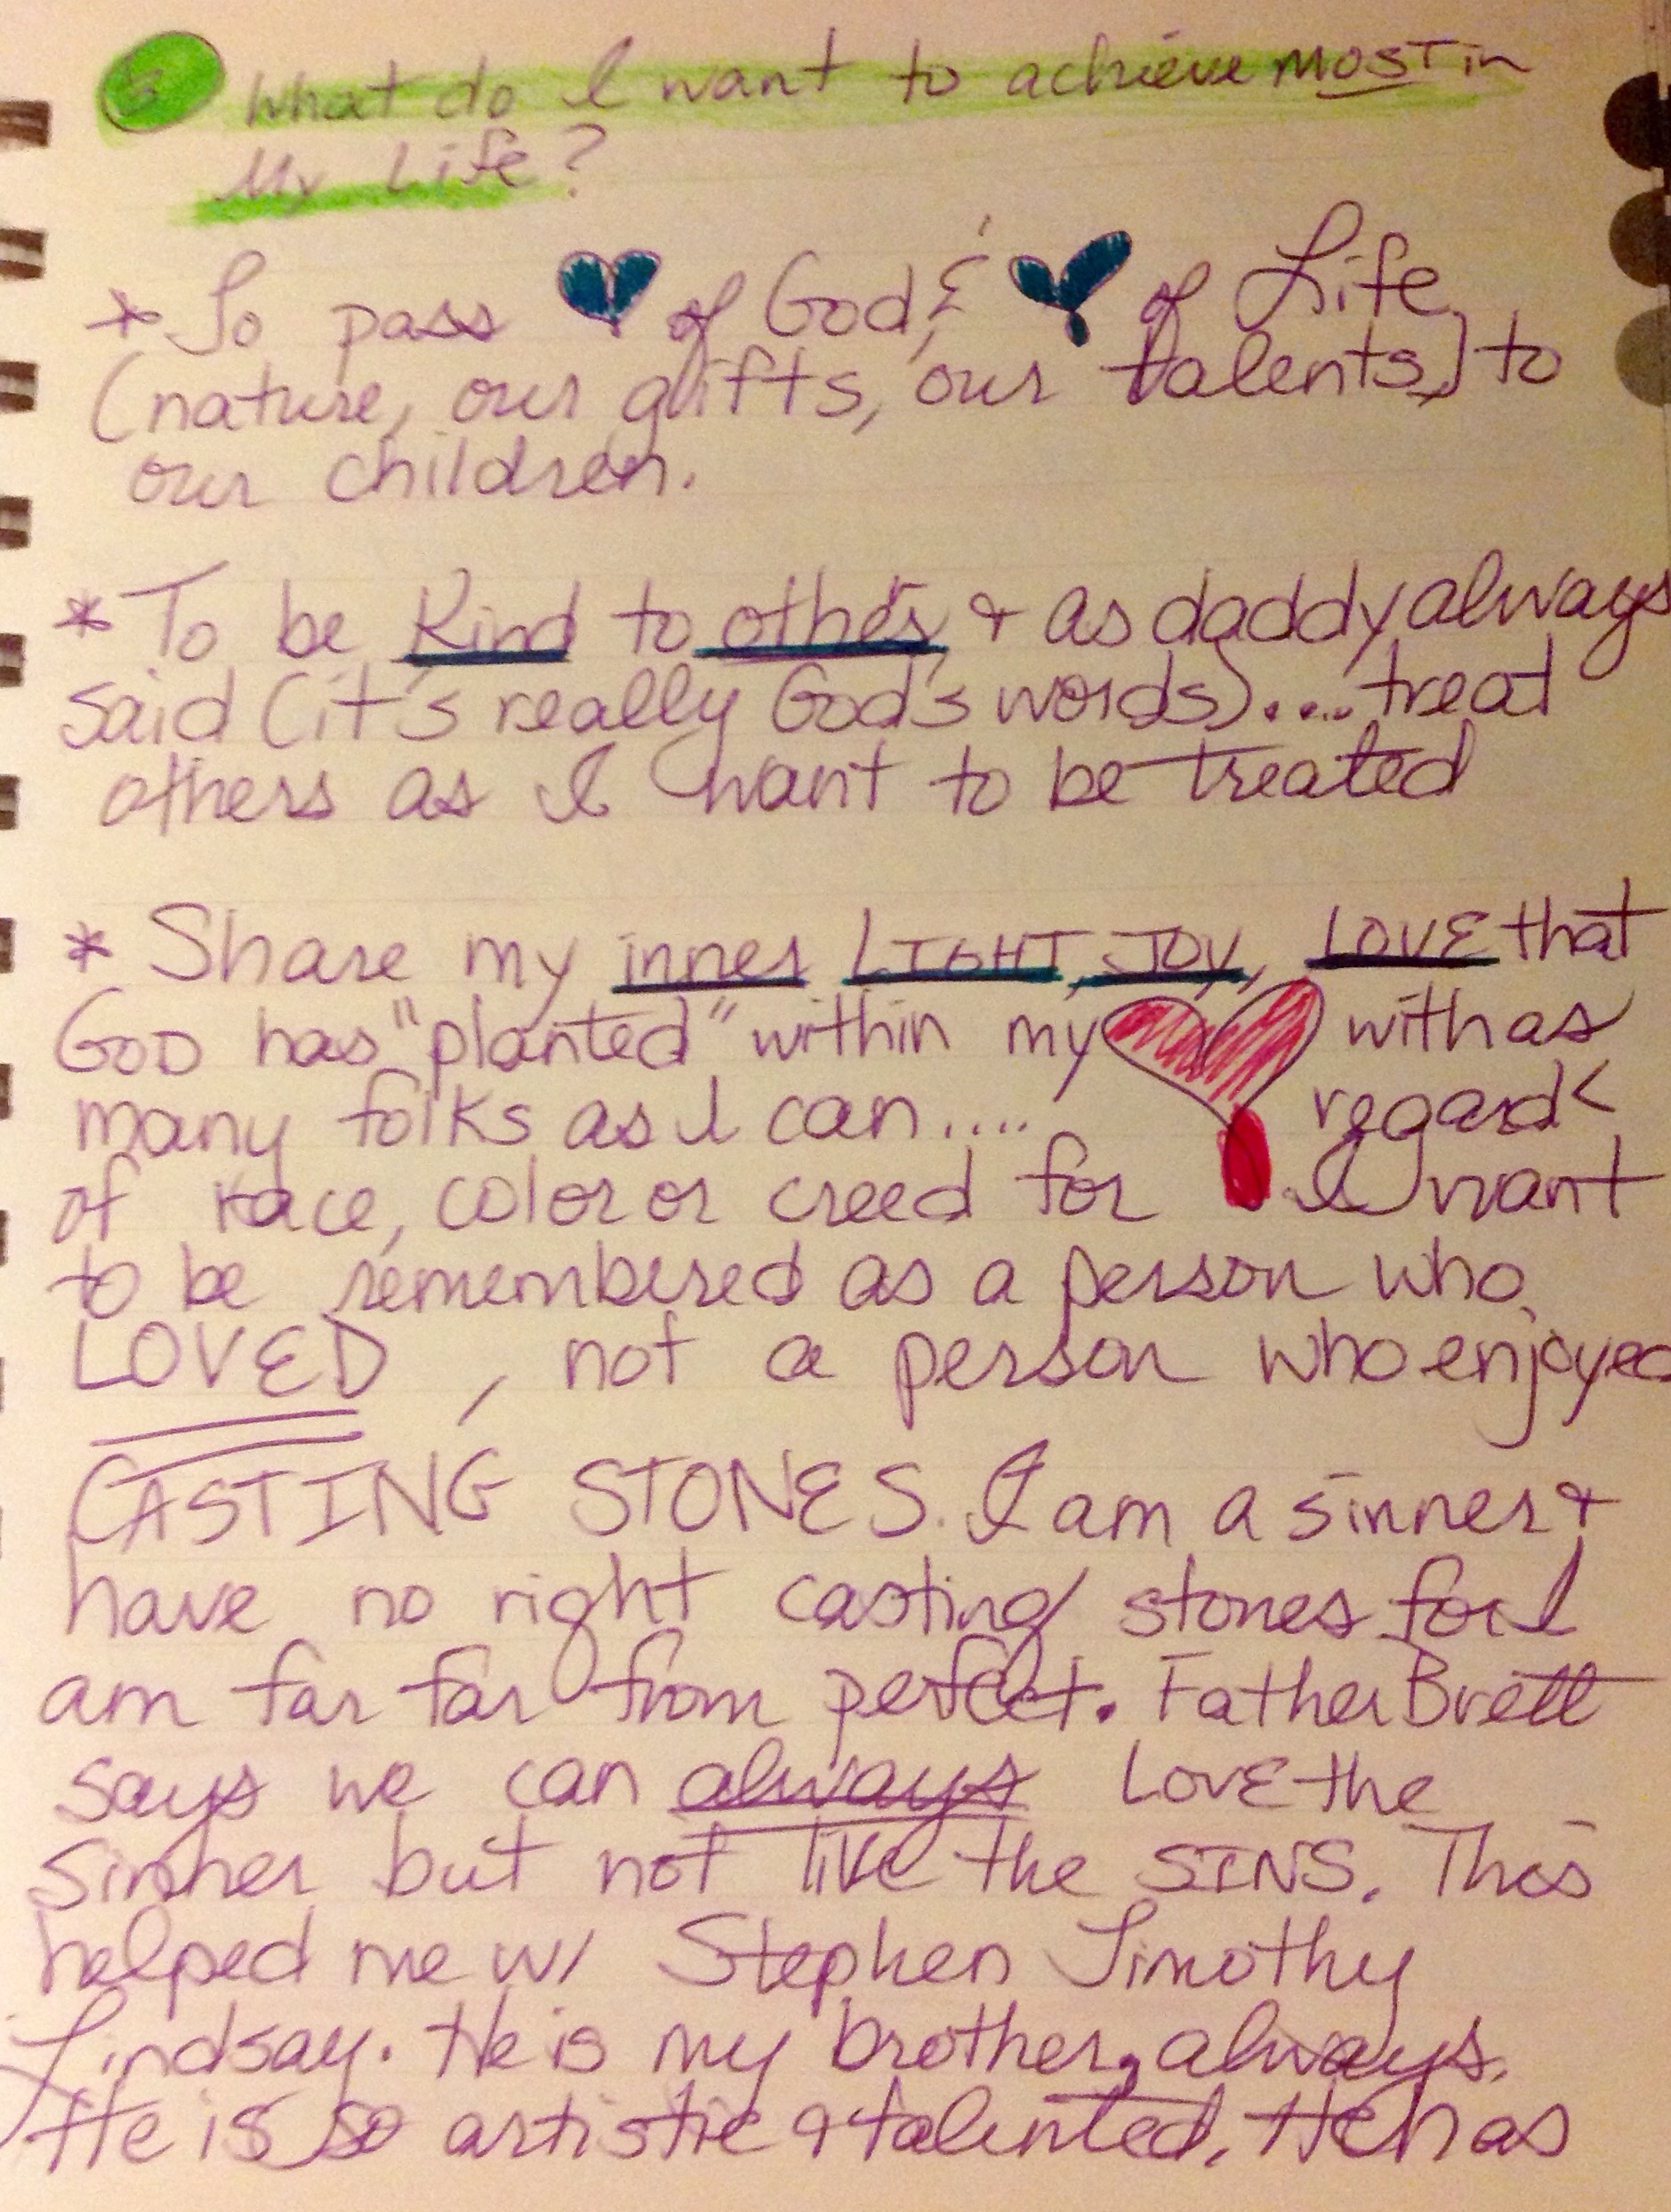 What do I want to achieve MOST in
My Life?
* To pass of God & of Life
(nature, our gifts, our talents,) to
our children.
* To be Kind to others, & as daddy always
said (it's really God's words).... treat
others as I want to be treated
* Share my inner LIGHT, JOY, LOVE that
GOD has "planted" within my with as
many folks as I can.... regard<
of race, color or creed for I want
to be remembered as a person who
LOVED, not a person who enjoyed
CASTING STONES. I am a sinner &
have no right casting stones for I
am far far from perfect. Father Brett
says we can always LOVE the
sinner but not like the SINS. This
helped me w/ Stephen Timothy
Lindsay. He is my brother, always.
He is so artistic & talented. He has